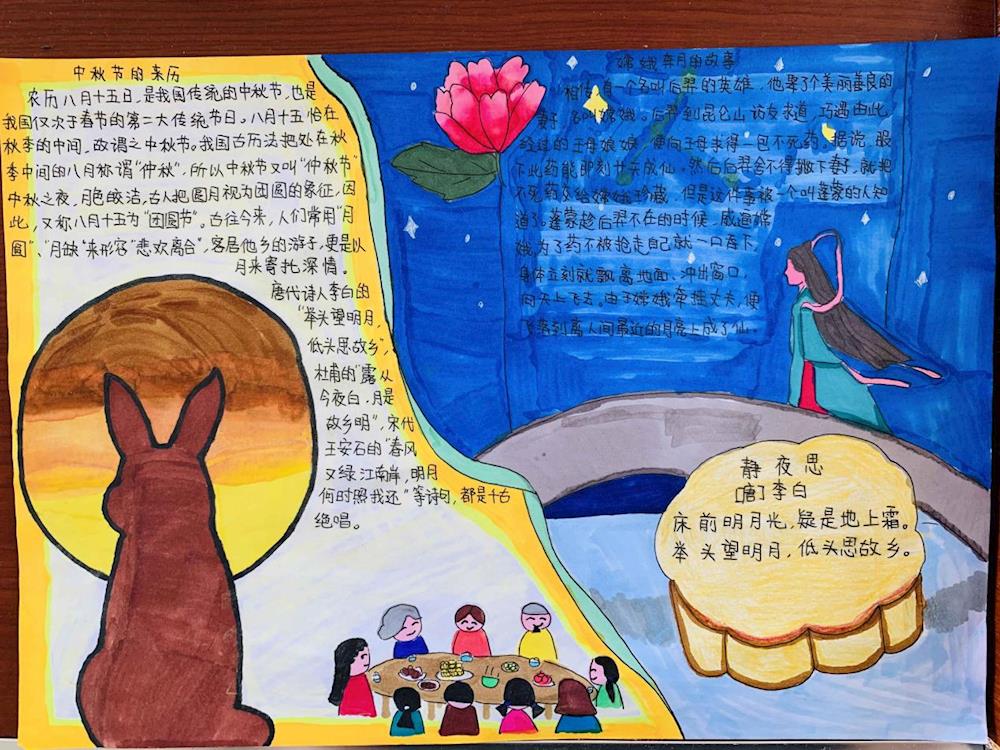 中秋节的来历
农历八月十五日,是我国传统的中秋节,也是
我国仅次于春节的第二大传统节日。八月十五恰在
秋季的中间,故谓之中秋节。我国古历法把处在秋
季中间的八月称谓“仲秋”,所以中秋节又叫“仲秋节”
中秋之夜,月色皎洁,古人把圆月视为团圆的象征,因
此,又称八月十五为“团圆节”。古往今来,人们常用“月
圆”、“月缺”来形容“悲欢离合”,客居他乡的游子,更是以
月来寄托深情。
唐代诗人李白的
“举头望明月,
低头思故乡”,
杜甫的“露从
今夜白,月是
故乡明”,宋代
王安石的“春风
又绿江南岸,明月
何时照我还”等诗句,都是千古
绝唱。
嫦娥奔月的故事
相传,有一个名叫后羿的英雄,他娶了个美丽善良的
妻子,名叫嫦娥。后羿到昆仑山访友求道,巧遇由此
经过的王母娘娘,便向王母求得一包不死药。据说,服
下此药能即刻升天成仙。然后后羿舍不得撇下妻子,就把
不死药交给嫦娥珍藏,但是这件事被一个叫蓬蒙的人知
道了。蓬蒙趁后羿不在的时候,威逼嫦
娥,为了药不被抢走自己就一口吞下,
身体立刻就飘离地面、冲出窗口,
向天上飞去。由于嫦娥牵挂丈夫,便
飞落到离人间最近的月亮上成了仙。
静夜思
[唐]李白
床前明月光,疑是地上霜。
举头望明月,低头思故乡。